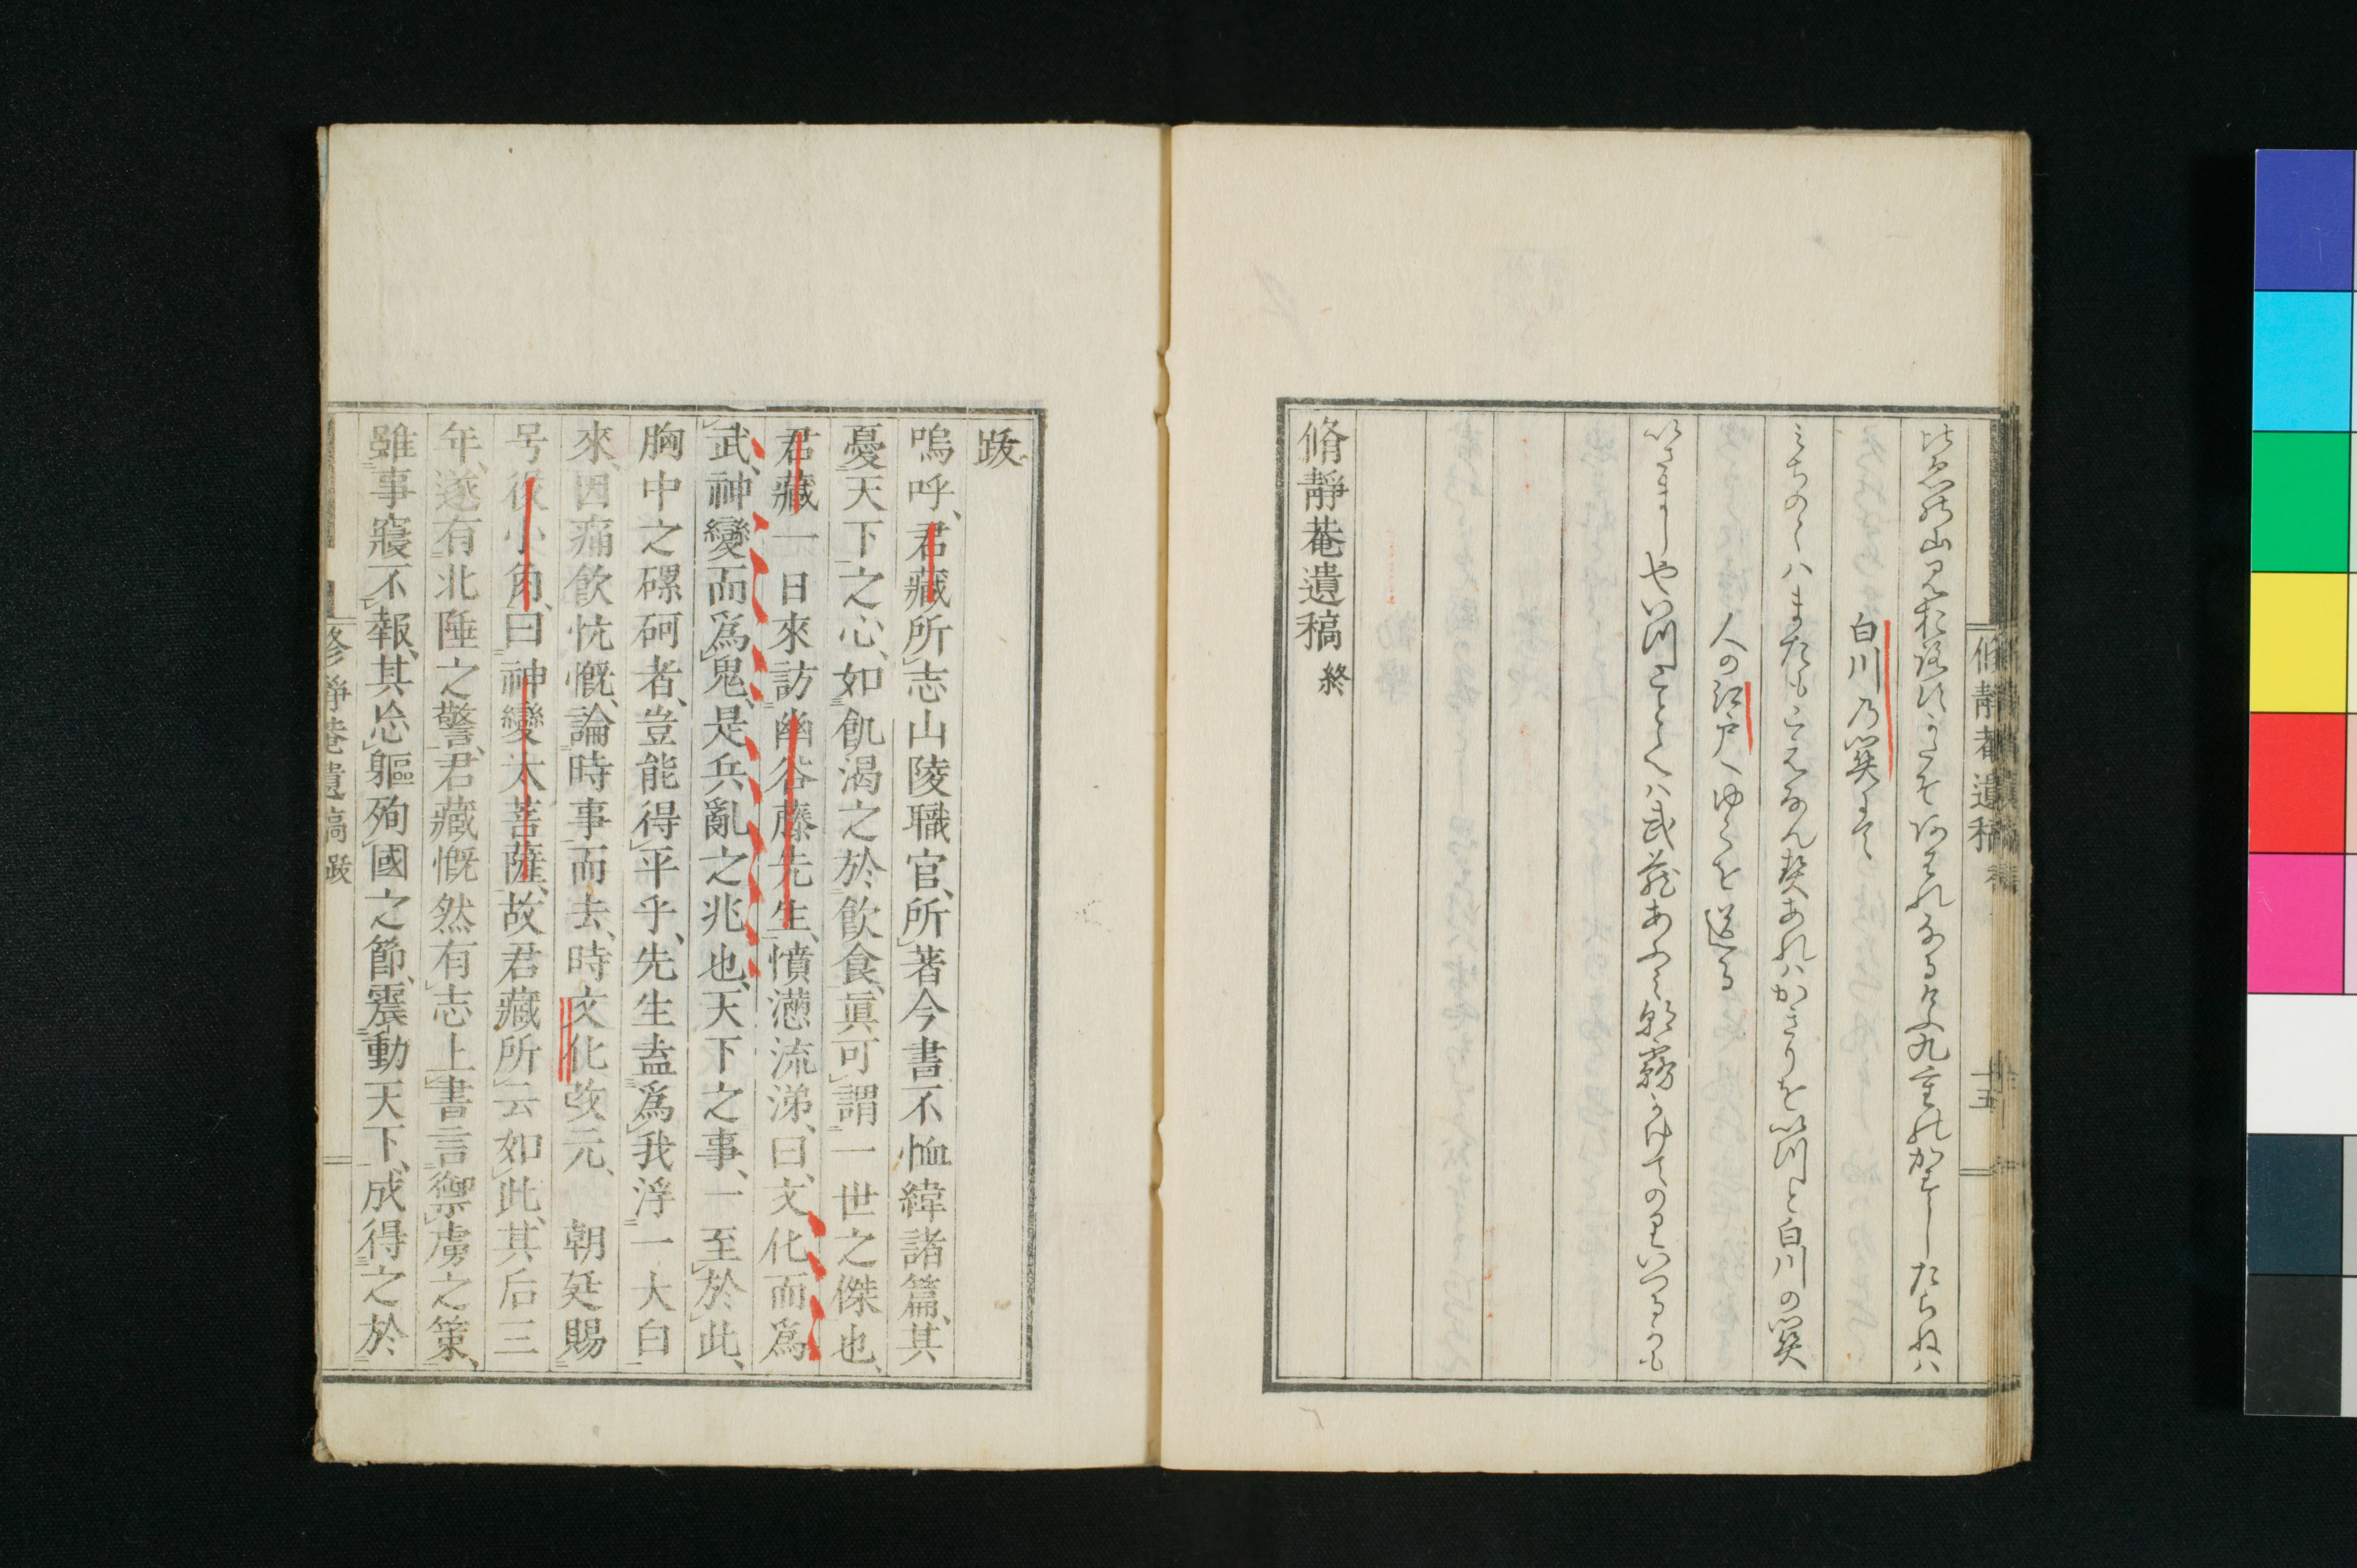 比えの山見おろすかたそあはれなるけふ九重のかすしたらねハ
白川乃関にて
みちのくハまたもこえなん契あれハかきりをいつと白川の関
人の江戸へゆくを送る
いさましやいつこととへハ武蔵あふみ朝霧かけてのりいつるかも
脩靜菴遺稿 終
脩靜菴遺稿
十五
跋
嗚呼、君藏所志山陵職官、所著今書不恤緯諸篇、其
憂天下之心、如飢渴之於飲食、眞可謂一世之傑也、
君藏一日來訪幽谷藤先生、憤懣流涕、曰、文化而爲
武、神變而爲鬼、是兵亂之兆也、天下之事、一至於此、
胸中之磥砢者、豈能得平乎、先生盍爲我浮一大白
來、因痛飲忼慨、論時事而去、時文化改元、 朝廷賜
号役小角、曰神變大菩薩、故君藏所云如此、其后三
年、遂有北陲之警、君藏慨然有志上書言禦虜之策、
雖事寢不報、其忘軀殉國之節、震動天下、成得之於
修靜菴遺稿 跋